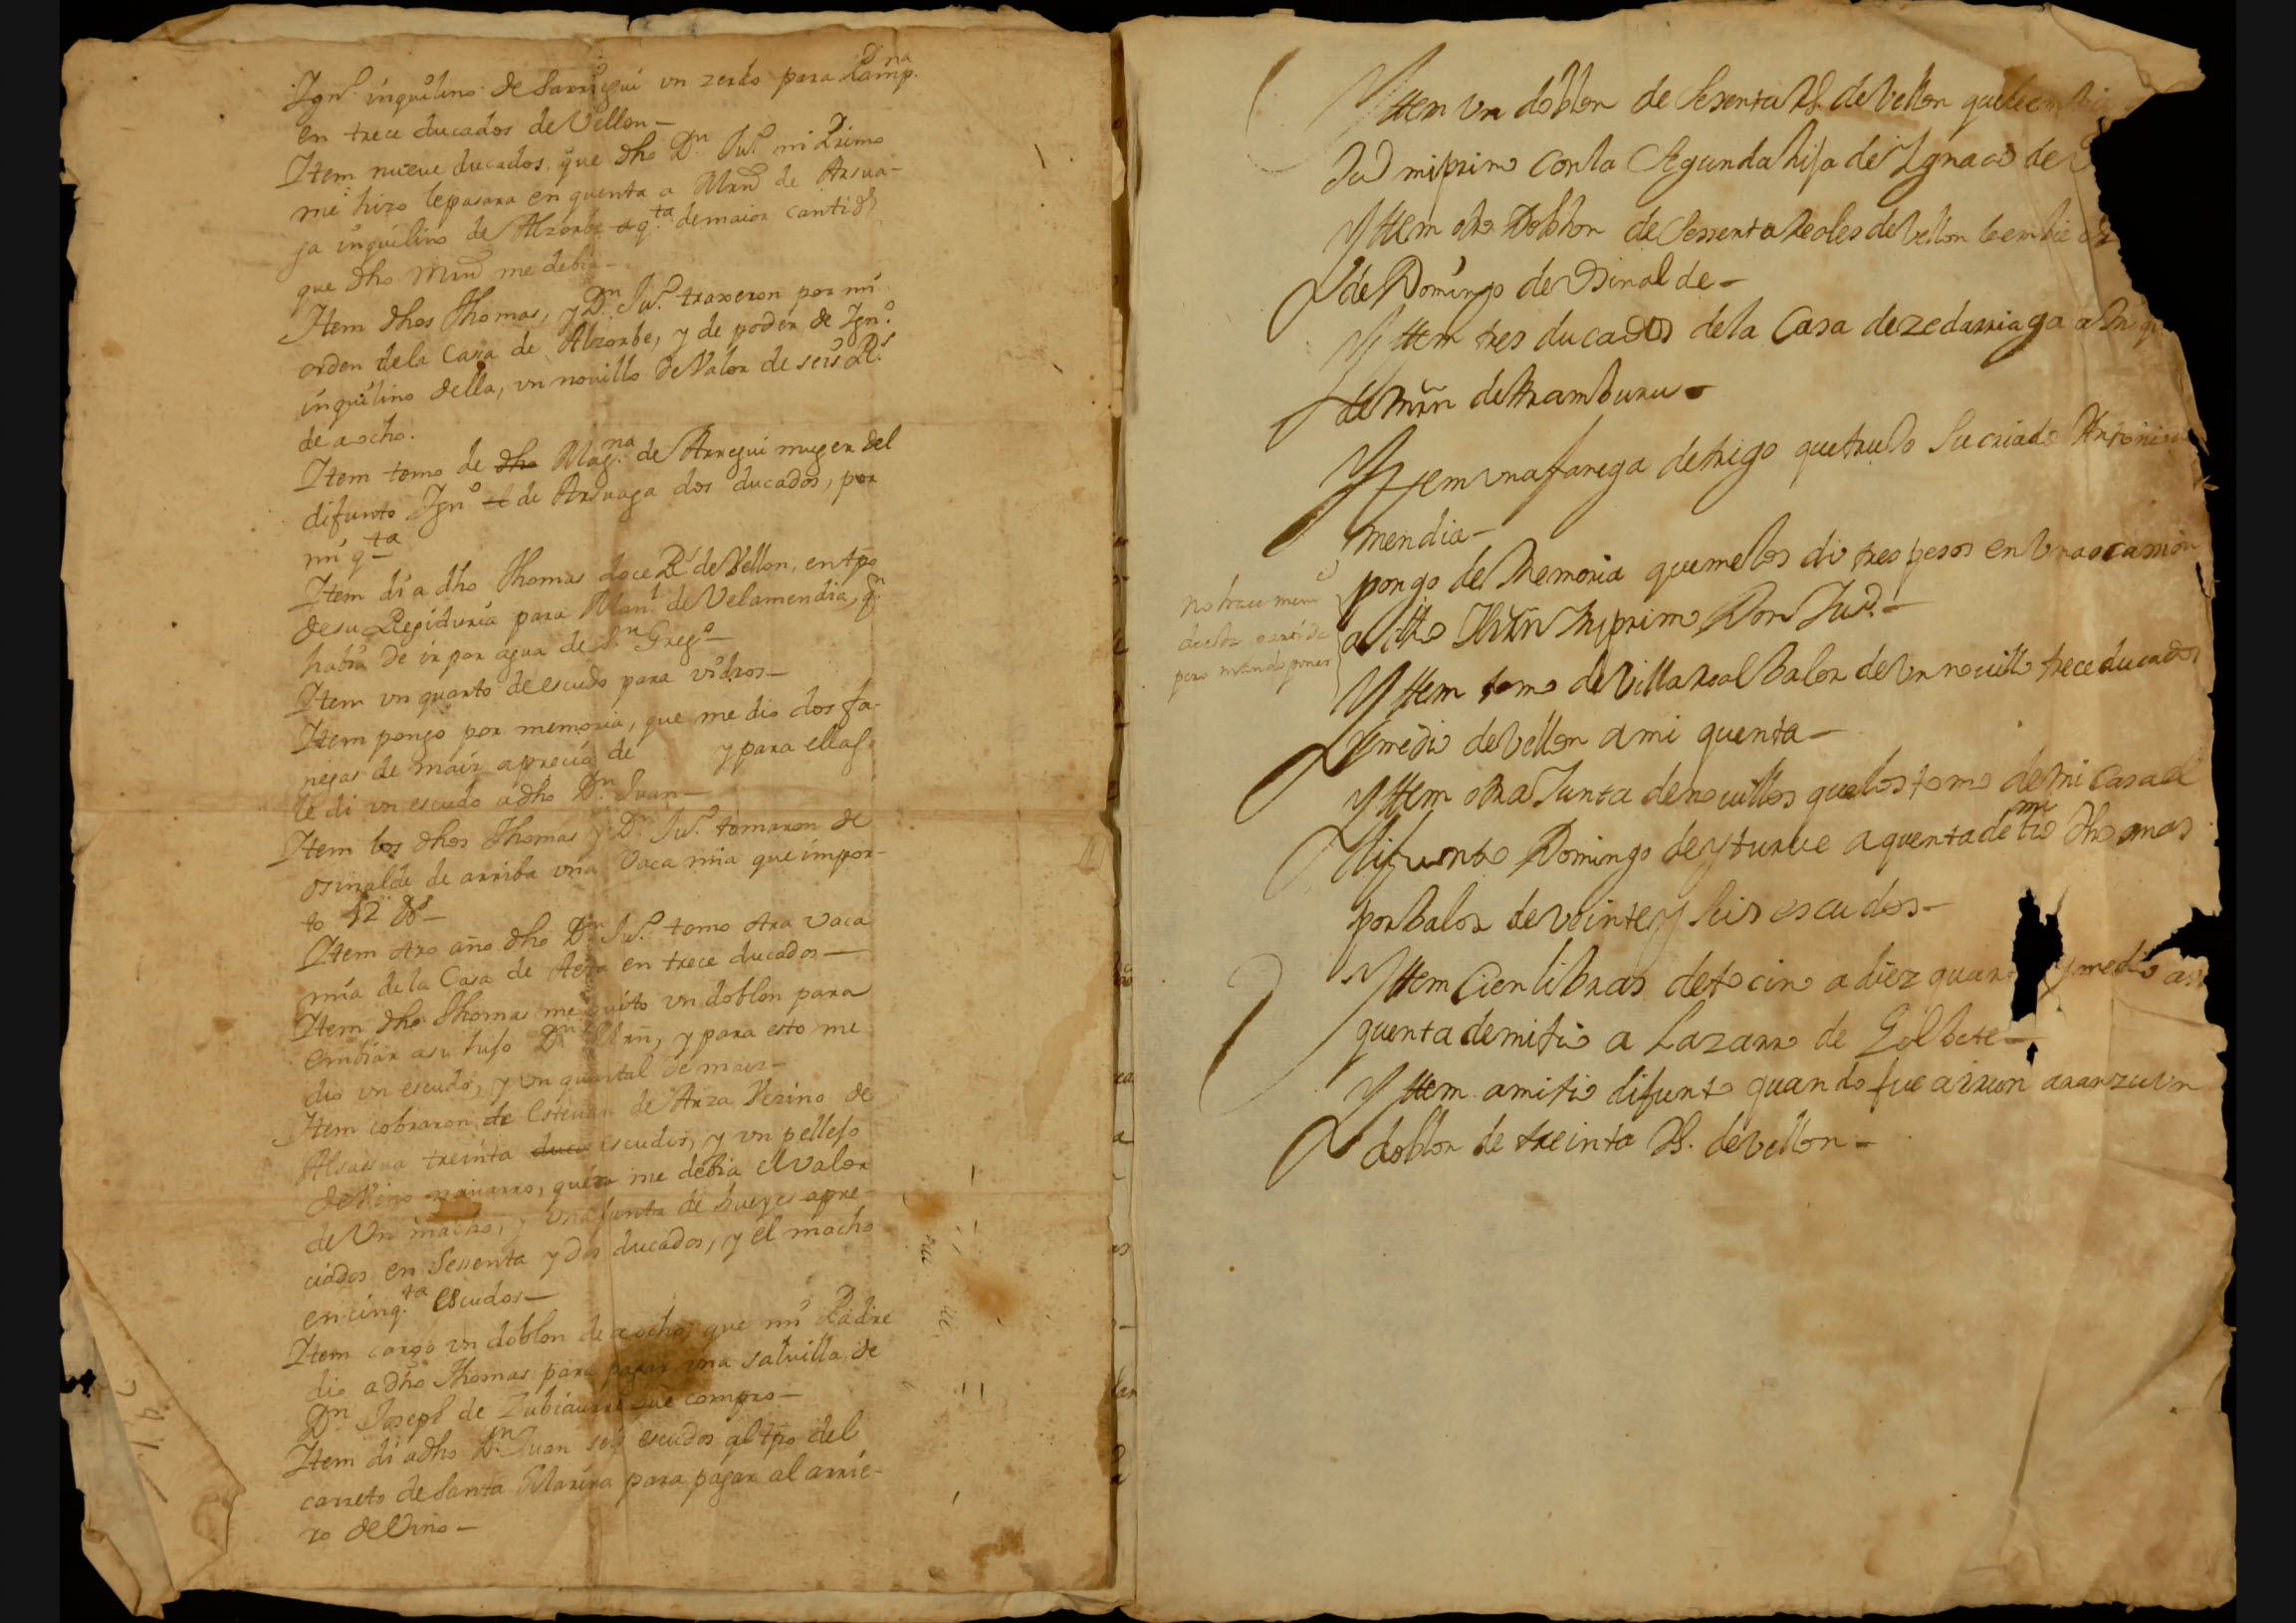 Ignº. inquilino de Sarrigui vn zerdo para Pampna.
en trece ducados de Vellon—
Item nueve ducados, que dho Dn. Juº. mi Primo
me hizo lepasara en quenta a Mrnº de Arsua-
ga inquilino de Alzorbe a qta. demaior cantidd
que dho Mrnº me debia—
Item dhos Thomas, y Dn. Juº. traxeron por mi
orden dela Casa de Alzorbe, y de poder de Ignº.
inquilino della, vn novillo de Valor de seis Rs.
de a ocho.
Item tomo de dho Magna. de Arregui muger del
difunto Ignº de Arsuaga dos ducados, por
mi qta
Item di a dho Thomas doce Rs de Vellon, entpo
desu Regiduria para Manl de Velamendia, qn.
habia de ir por agua de Sn Gregº—
Item vn quarto de escudo para vidros—
Item pongo por memoria, que me dio dos fa-
negas de maiz aprecio de y para ellas
le di vn escudo adho Dn. Juan—
Item los dhos Thomas y Dn. Juº. tomaron de
osinalde de arriba vna Vaca mia que impor-
to 12 Ds—
Item otro año dho Dn Juº. tomo otra vaca
mia de la Casa de en trece ducados—
Item dho Thomas me quito vn doblon para
embiar asu hijo Dn Mrn, y para esto me
dio vn escudo, y vn quintal de maiz—
Item cobraron de Estevan de Arza Vezino de
Alsasua treinta ducs escudos, y vn pellejo
de Vino navarro, que me debia el valor
de Vn macho, y vna junta de bueyes apre-
ciados en Sesenta y dos ducados, y el macho
en cinqta. escudos—
Item cargo vn doblon de a ocho, que mi Padre
dio a dho Thomas para pagar vna salvilla, de
Dn Joseph de Zubiaurre que compro—
Item di adho Dn. Juan seis escudos al tpo del
carreto de Santa Marina para pagar al arrie-
ro de Vino—
Yttem Vn doblon de Sesenta Rs. de Vellon que le embie
Juº mi primo Con la Segunda hija de Ygnacio de
Yttem otro Doblon de Sesenta Reales de Vellon le embie
de Domingo de Osinalde—
Yttem tres ducados dela Casa dezedarriaga a
de Mrn de Aramburu—
Yttem vna fanega detrigo que trujo Su criado Antonio
mendia—
pongo de Memoria que melos dio tres pesos en Vna ocasion
a dho Mrn Mi primo Don Juº.—
no hace memª
de esta partida
pero mando poner
Yttem tomo de Villa Real Balor de Vn novillo trece ducados
y medio de Vellon a mi quenta—
Yttem otra Junta de novillos que los tomo de mi Casa el
difunto Domingo de yturve a quenta de mi tio Thomas
por balor de veinte y Seis escudos—
Yttem Cien libras detocino a diez quar y medio a
quenta de mi tio a Lazaro de Golbete—
Yttem a mi tio difunto quando fue airun aranzu Vn
doblon de treinta Rs. de Vellon—